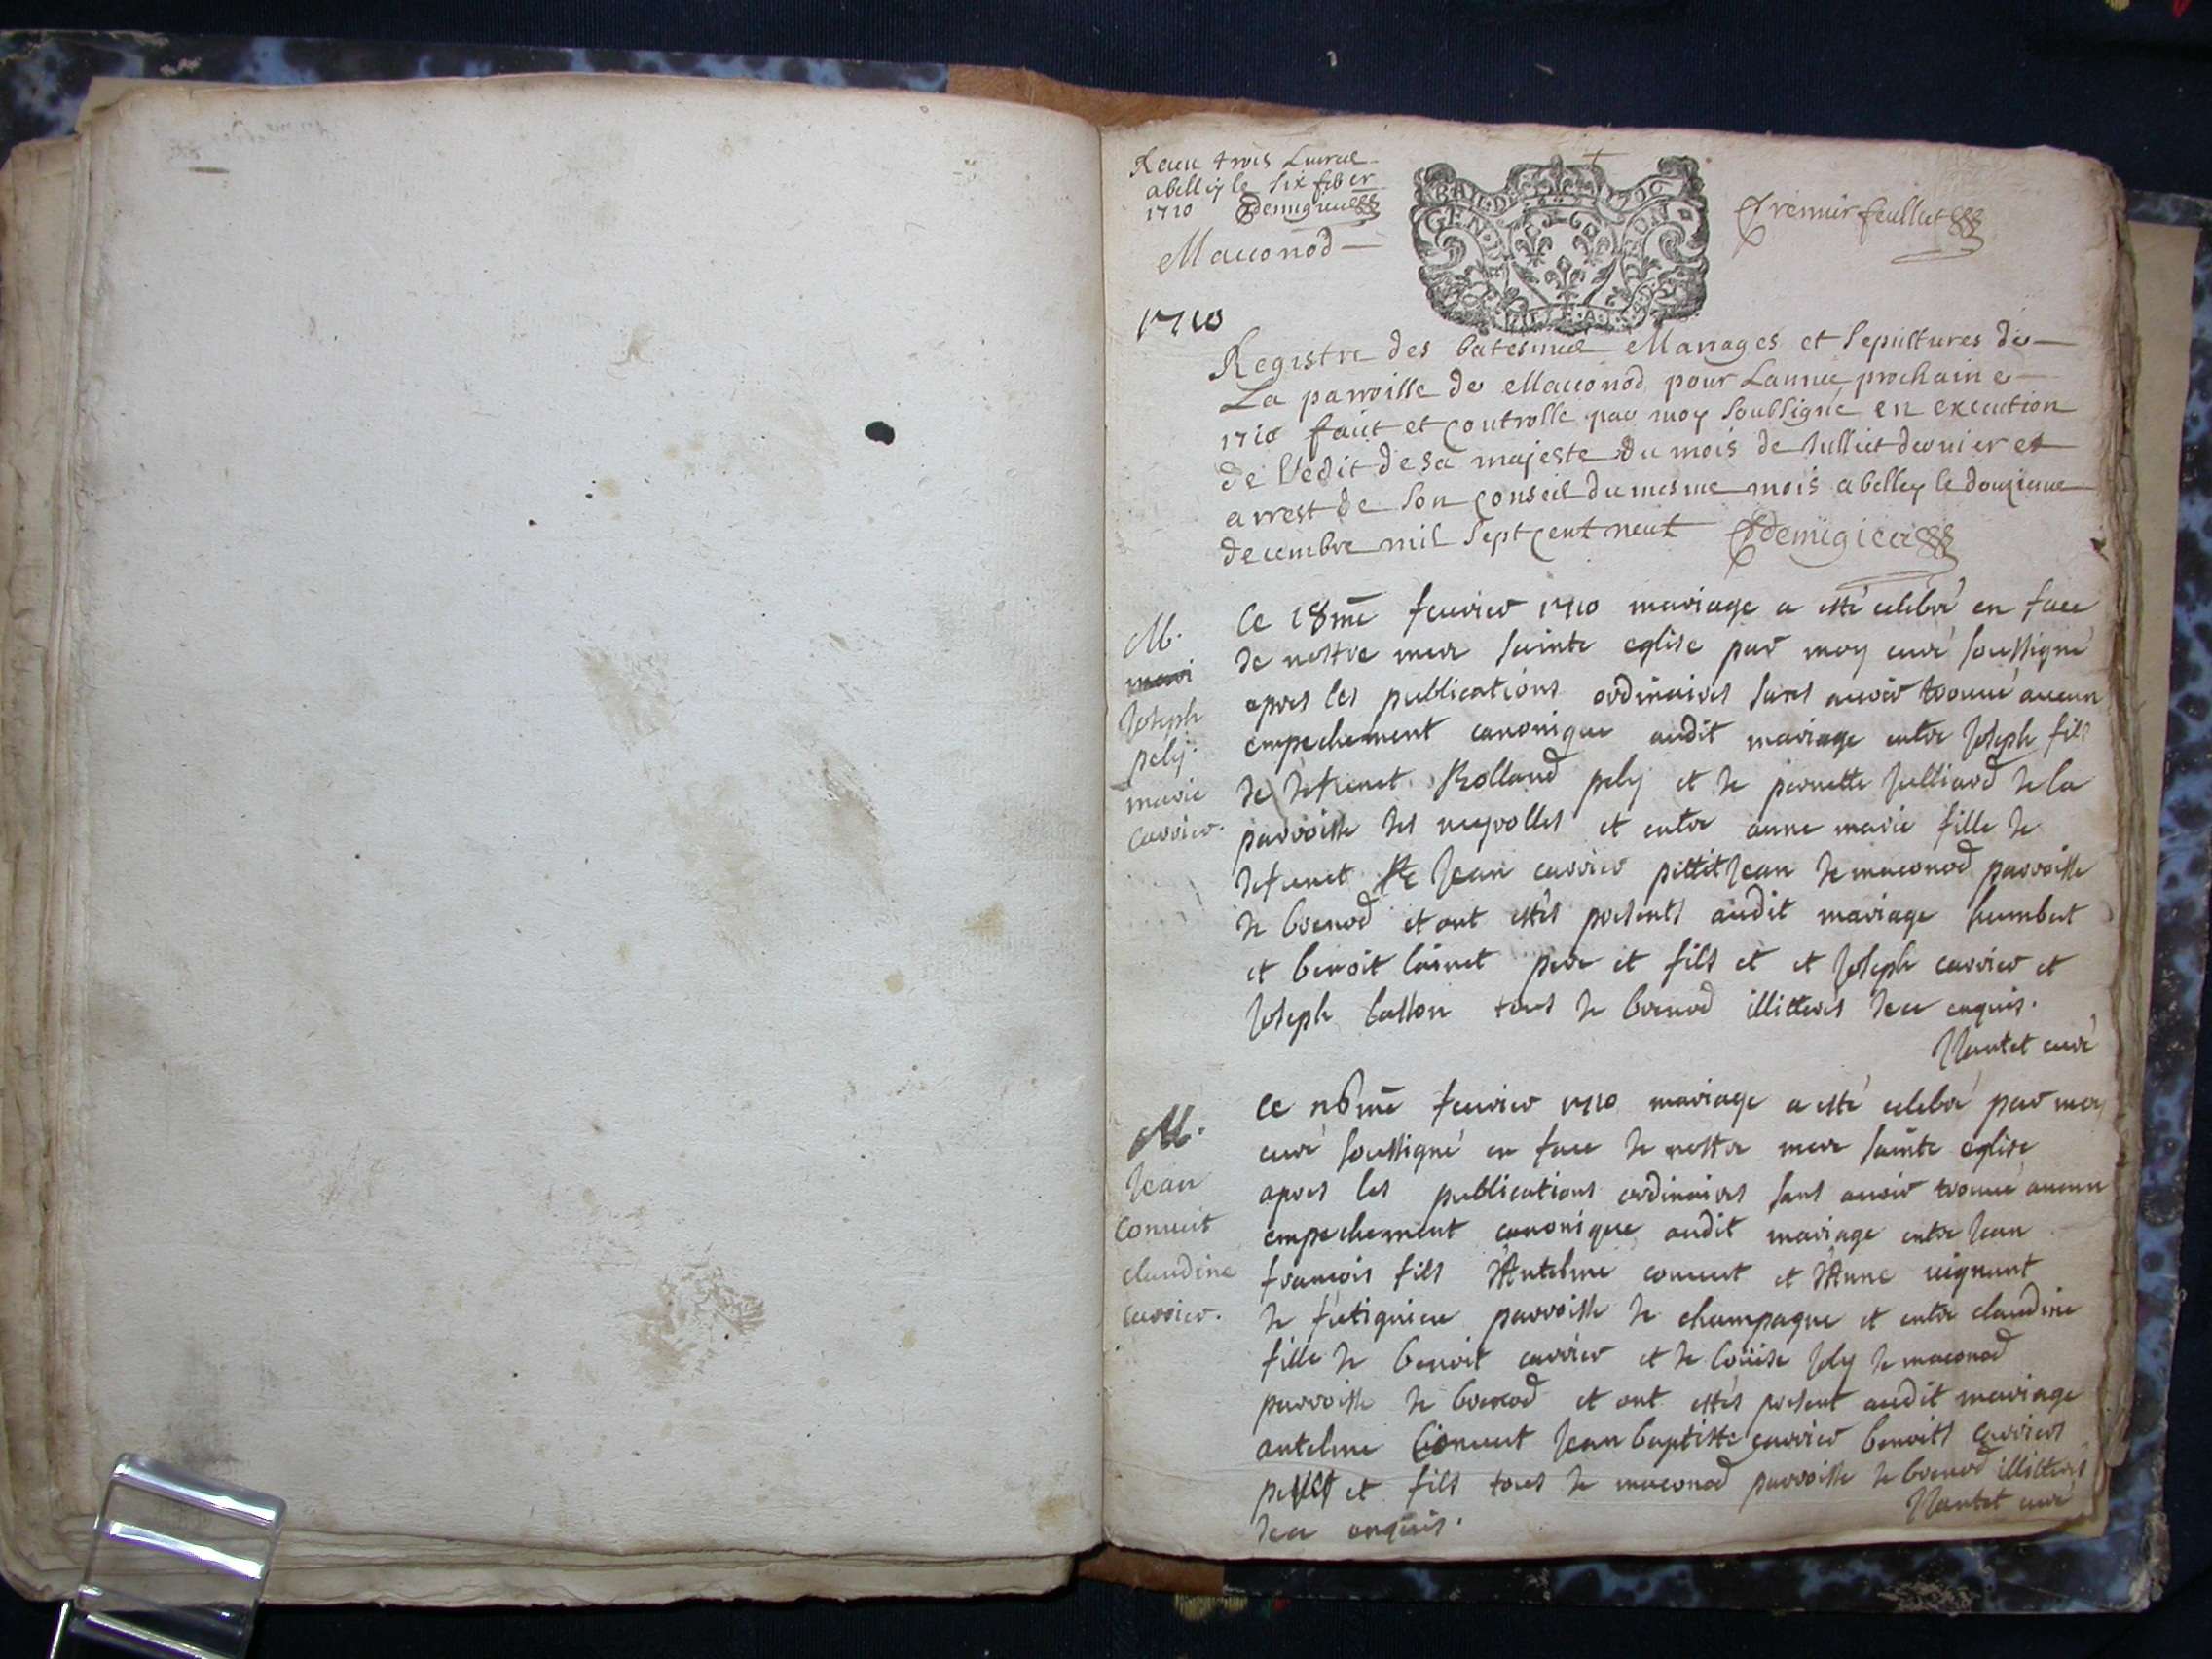 Receu trois Liures
a belley le six feber
1710 Demigieu
Macconod
Premier feullet
GEN DE DIJON
1710
Registre des batesmes Mariages et Sepultures de
La parroisse de Macconod pour Lannee prochaine
1710 faict et controlle par moy soubsigné en execution
de l'edit de sa majeste du mois de Jullet dernier et
arrest de son Conseil du mesme mois a belley le douzieme
decembre mil sept cent neuf Demigieu
M.
mari
Joseph
pely.
marie
carrier.
Ce 18me feuvrier 1710 mariage a esté celebré en face
de nostre mere sainte eglise par moy curé soussigné
apres les publications ordinaires sans avoir trouvé aucun
empechement canonique audit mariage entre Joseph fils
de defunct Rolland pely et de pernette Julliard de la
parroisse des neyrolles et entre anne marie fille de
defunct Jean carrier pettit Jean de maconod parroisse
de brenod et ont estés presents audit mariage humbert
et benoit pere et fils et et Joseph carrier et
Joseph tous de brenod illitterés de ce enquis.
Nantet curé
M.
Jean
Convert
claudine
carrier.
Ce me feuvrier 1710 mariage a esté celebré par moy
curé soussigné en face de nostre mere sainte eglise
apres les publications ordinaires sans avoir trouvé aucun
empechement canonique audit mariage entre Jean
françois fils d'Antelme convert et d'Anne
de parroisse de champagne et entre claudine
fille de benoit carrier et de loüise Joly de maconod
parroisse de brenod et ont estés present audit mariage
antelme Convert Jean baptiste carrier benoits carriers
peres et fils tous de maconod parroisse de brenod illitterés
de ce enquis.
Nantet curé